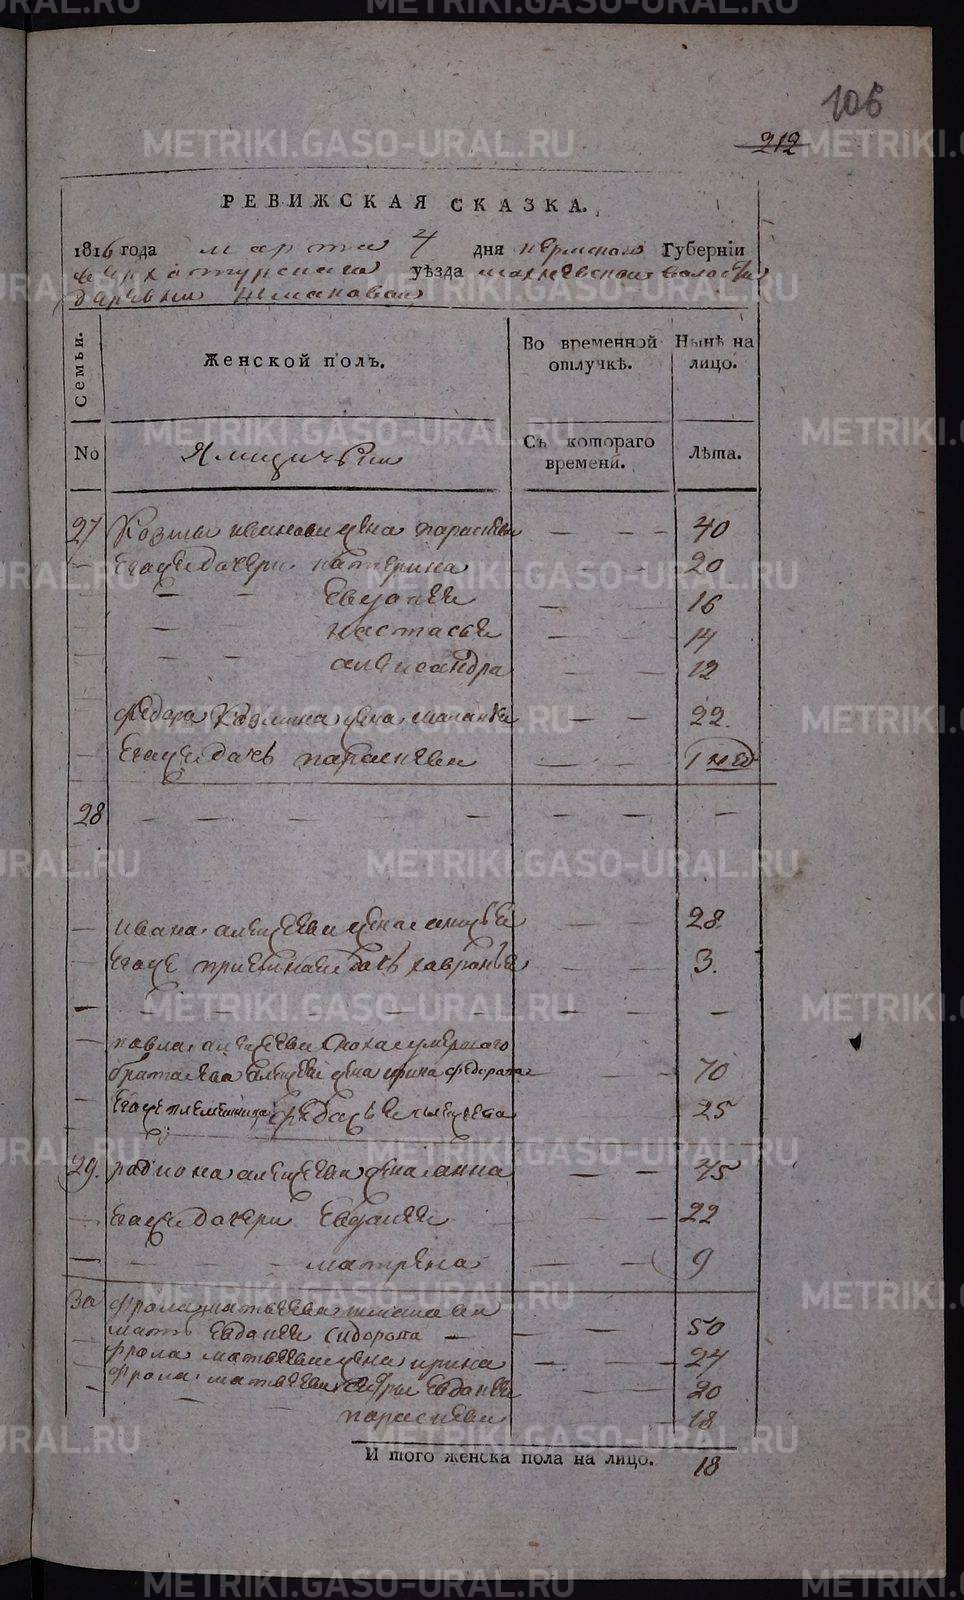 METRIKI.GASO-URAL.RU
106
212
РЕВИЖСКАЯ СКАЗКА.
1816 года марта 4 дня пермской Губерніи
верхотурскаго уѣзда махневской волости
деревни
Семьи. Женской полъ. Во временной отлучкѣ. Нынѣ на лицо.
No Ямщичьи Съ котораго времени. Лѣта.
27 Козмы иванова жена парасковья — — — 40
— Егоже дочери катерина — — 20
— — Евдокея — — 16
— — настасья — — — 14
— — александра — — 12
федора Козмина жена маланья — — — 22.
— Егоже дочь парасковья — — 1 нед
28 — — — — — — — — — —
— ивана алексеева жена — — 28
— Егоже дочь хавронья — — 3.
— — — — — — — — — —
— павла алексеева сноха умершаго
брата его алексея жена ирина федорова — — 70
— Егоже племянница елисавета — — 25
29. родиона алексеева жена анна — — 45
— Егоже дочери Евдокея — — — 22
— — — — матрена — — 9
30 фрола матвеева
мать Евдокея Сидорова — — — 50
фрола матвеева жена ирина — — — 24
фрола матвеева сестры Евдокея — — 20
— — парасковья — 18
И того женска пола на лицо. 18